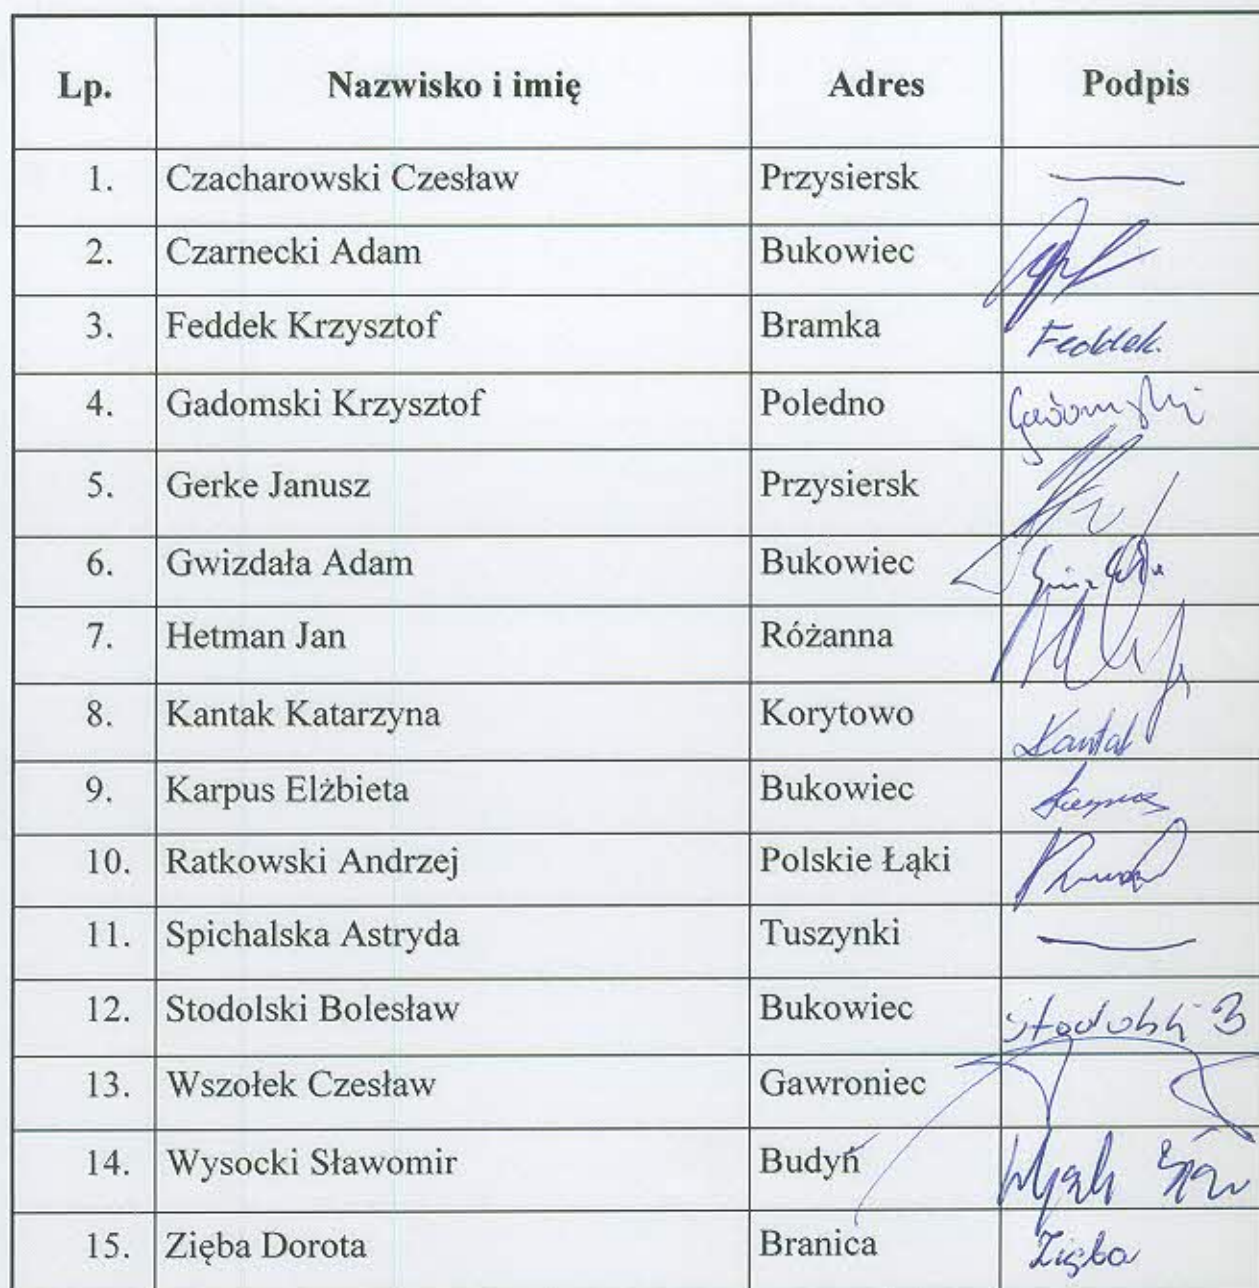 Lp. Nazwisko i imię Adres Podpis
1. Czacharowski Czesław Przysiersk
2. Czarnecki Adam Bukowiec
3. Feddek Krzysztof Bramka Feddek.
4. Gadomski Krzysztof Poledno Gadomski
5. Gerke Janusz Przysiersk
6. Gwizdała Adam Bukowiec
7. Hetman Jan Różanna
8. Kantak Katarzyna Korytowo Kantak
9. Karpus Elżbieta Bukowiec Karpus
10. Ratkowski Andrzej Polskie Łąki
11. Spichalska Astryda Tuszynki
12. Stodolski Bolesław Bukowiec Stodolski B
13. Wszołek Czesław Gawroniec
14. Wysocki Sławomir Budyń
15. Zięba Dorota Branica Zięba